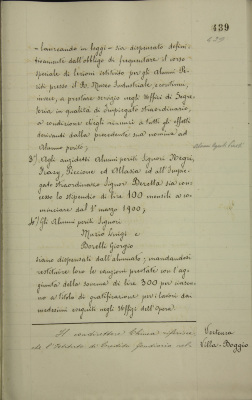 439
- laureando in leggi - sia dispensato defini-
tivamente dall'obbligo di frequentare il corso
speciale di lezioni istituito per gli Alunni Pe-
riti presso il R. Museo Industriale, e continui,
invece, a prestare servizio negli Uffici di Inge-
gneria in qualità di Impiegato straordinario,
a condizione ch'egli rinunci a tutti gli effetti
derivanti dalla precedente sua nomina ad
Alunno perito;
3°) Agli anzidetti Alunni periti Signori Negri,
Piccione ed Allara ed all'Impie-
gato straordinario Signor Beretta sia con-
cesso lo stipendio di lire 100 mensili a co-
minciare dal 1° marzo 1900;
4°) Gli Alunni periti Signori
Mario Luigi e
Borelli Giorgio
siano dispensati dall'alunnato; mandandosi
restituire loro le cauzioni prestate con l'ag-
giunta della somma di lire 300 per ciascu-
no a titolo di gratificazione per i lavori da
medesimi eseguiti negli Uffici dell'Opera.
Il condirettore Chiesa riferisce
che l'Istituto di Credito fondiario nel
Vertenza
Villa-Boggio